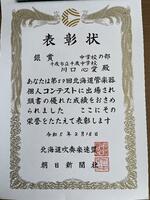 表彰状
銀賞 中学校の部
千歳市立千歳中学校
川口心愛 殿
あなたは第59回北海道管楽器
個人コンテストに出場され
頭書の優れた成績をおさめ
られました ここにその
栄誉をたたえて表彰します
令和5年2月18日
北海道吹奏楽連盟
朝日新聞社